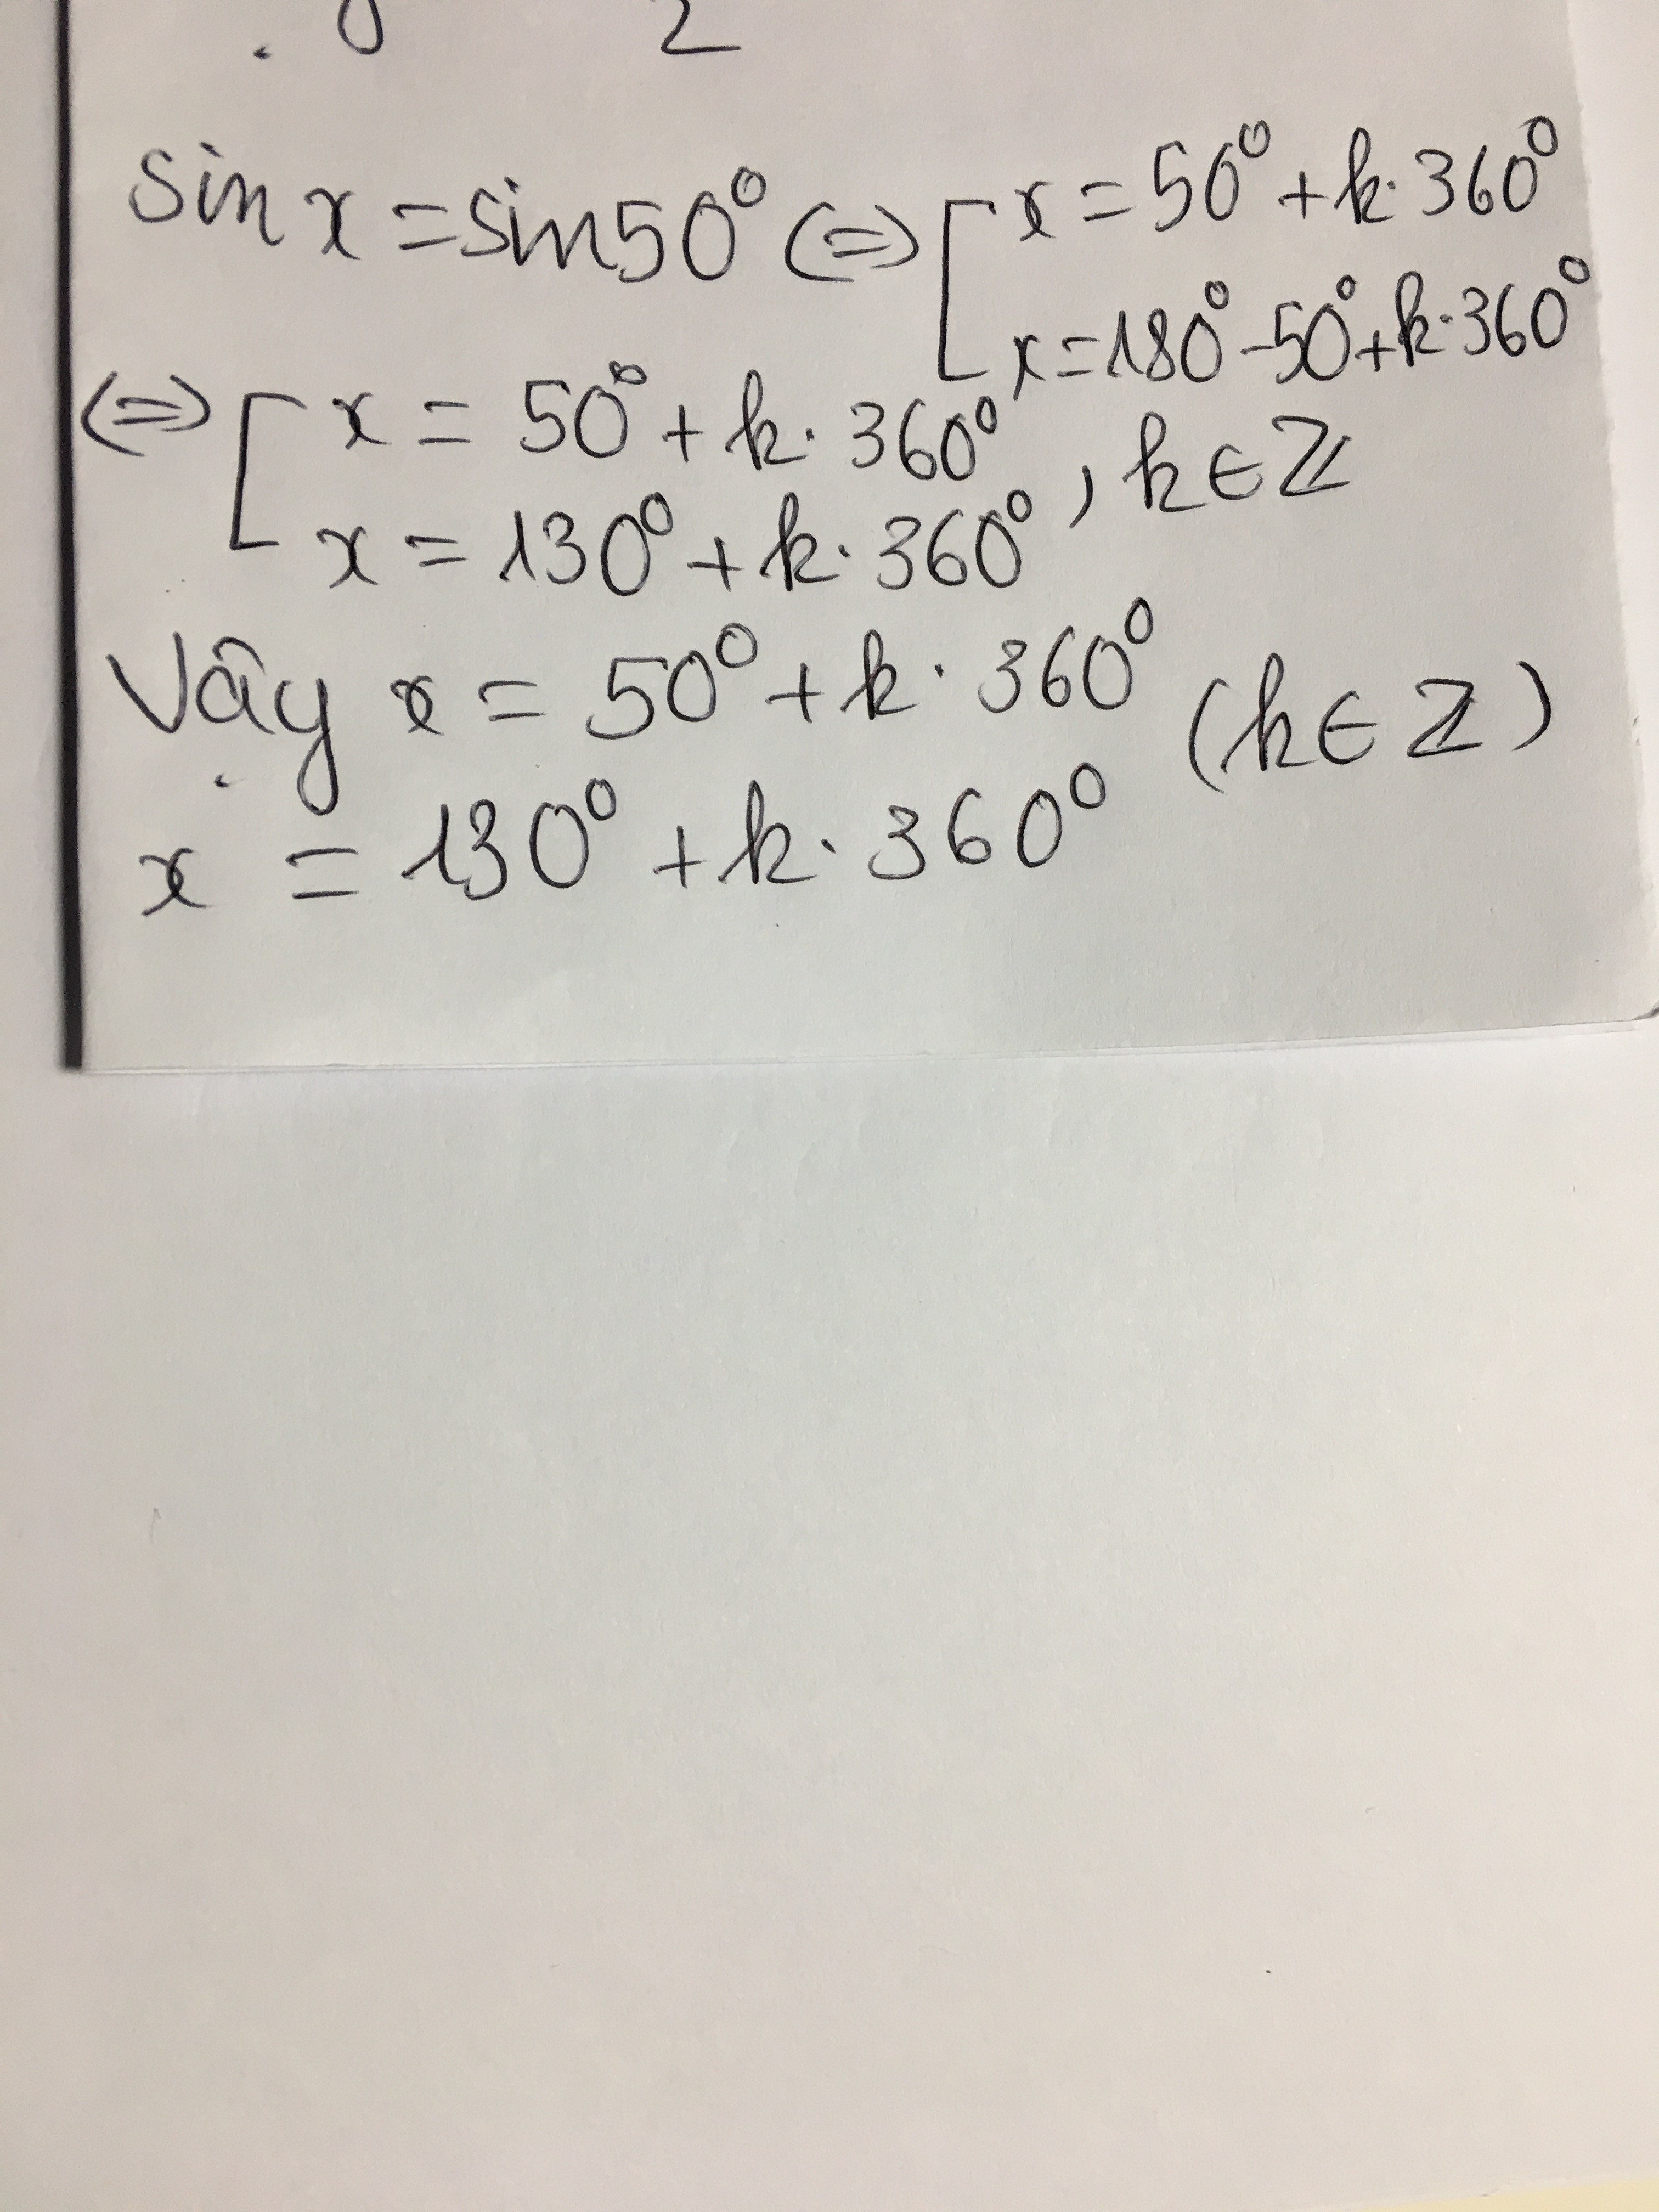 sin x = sin 50° (=) [ x = 50° + k. 360°
x = 180° - 50° + k. 360°
(=) [ x = 50° + k. 360°
x = 130° + k. 360° , k ∈ ℤ
Vậy x = 50° + k. 360° (k ∈ ℤ)
x = 130° + k. 360°